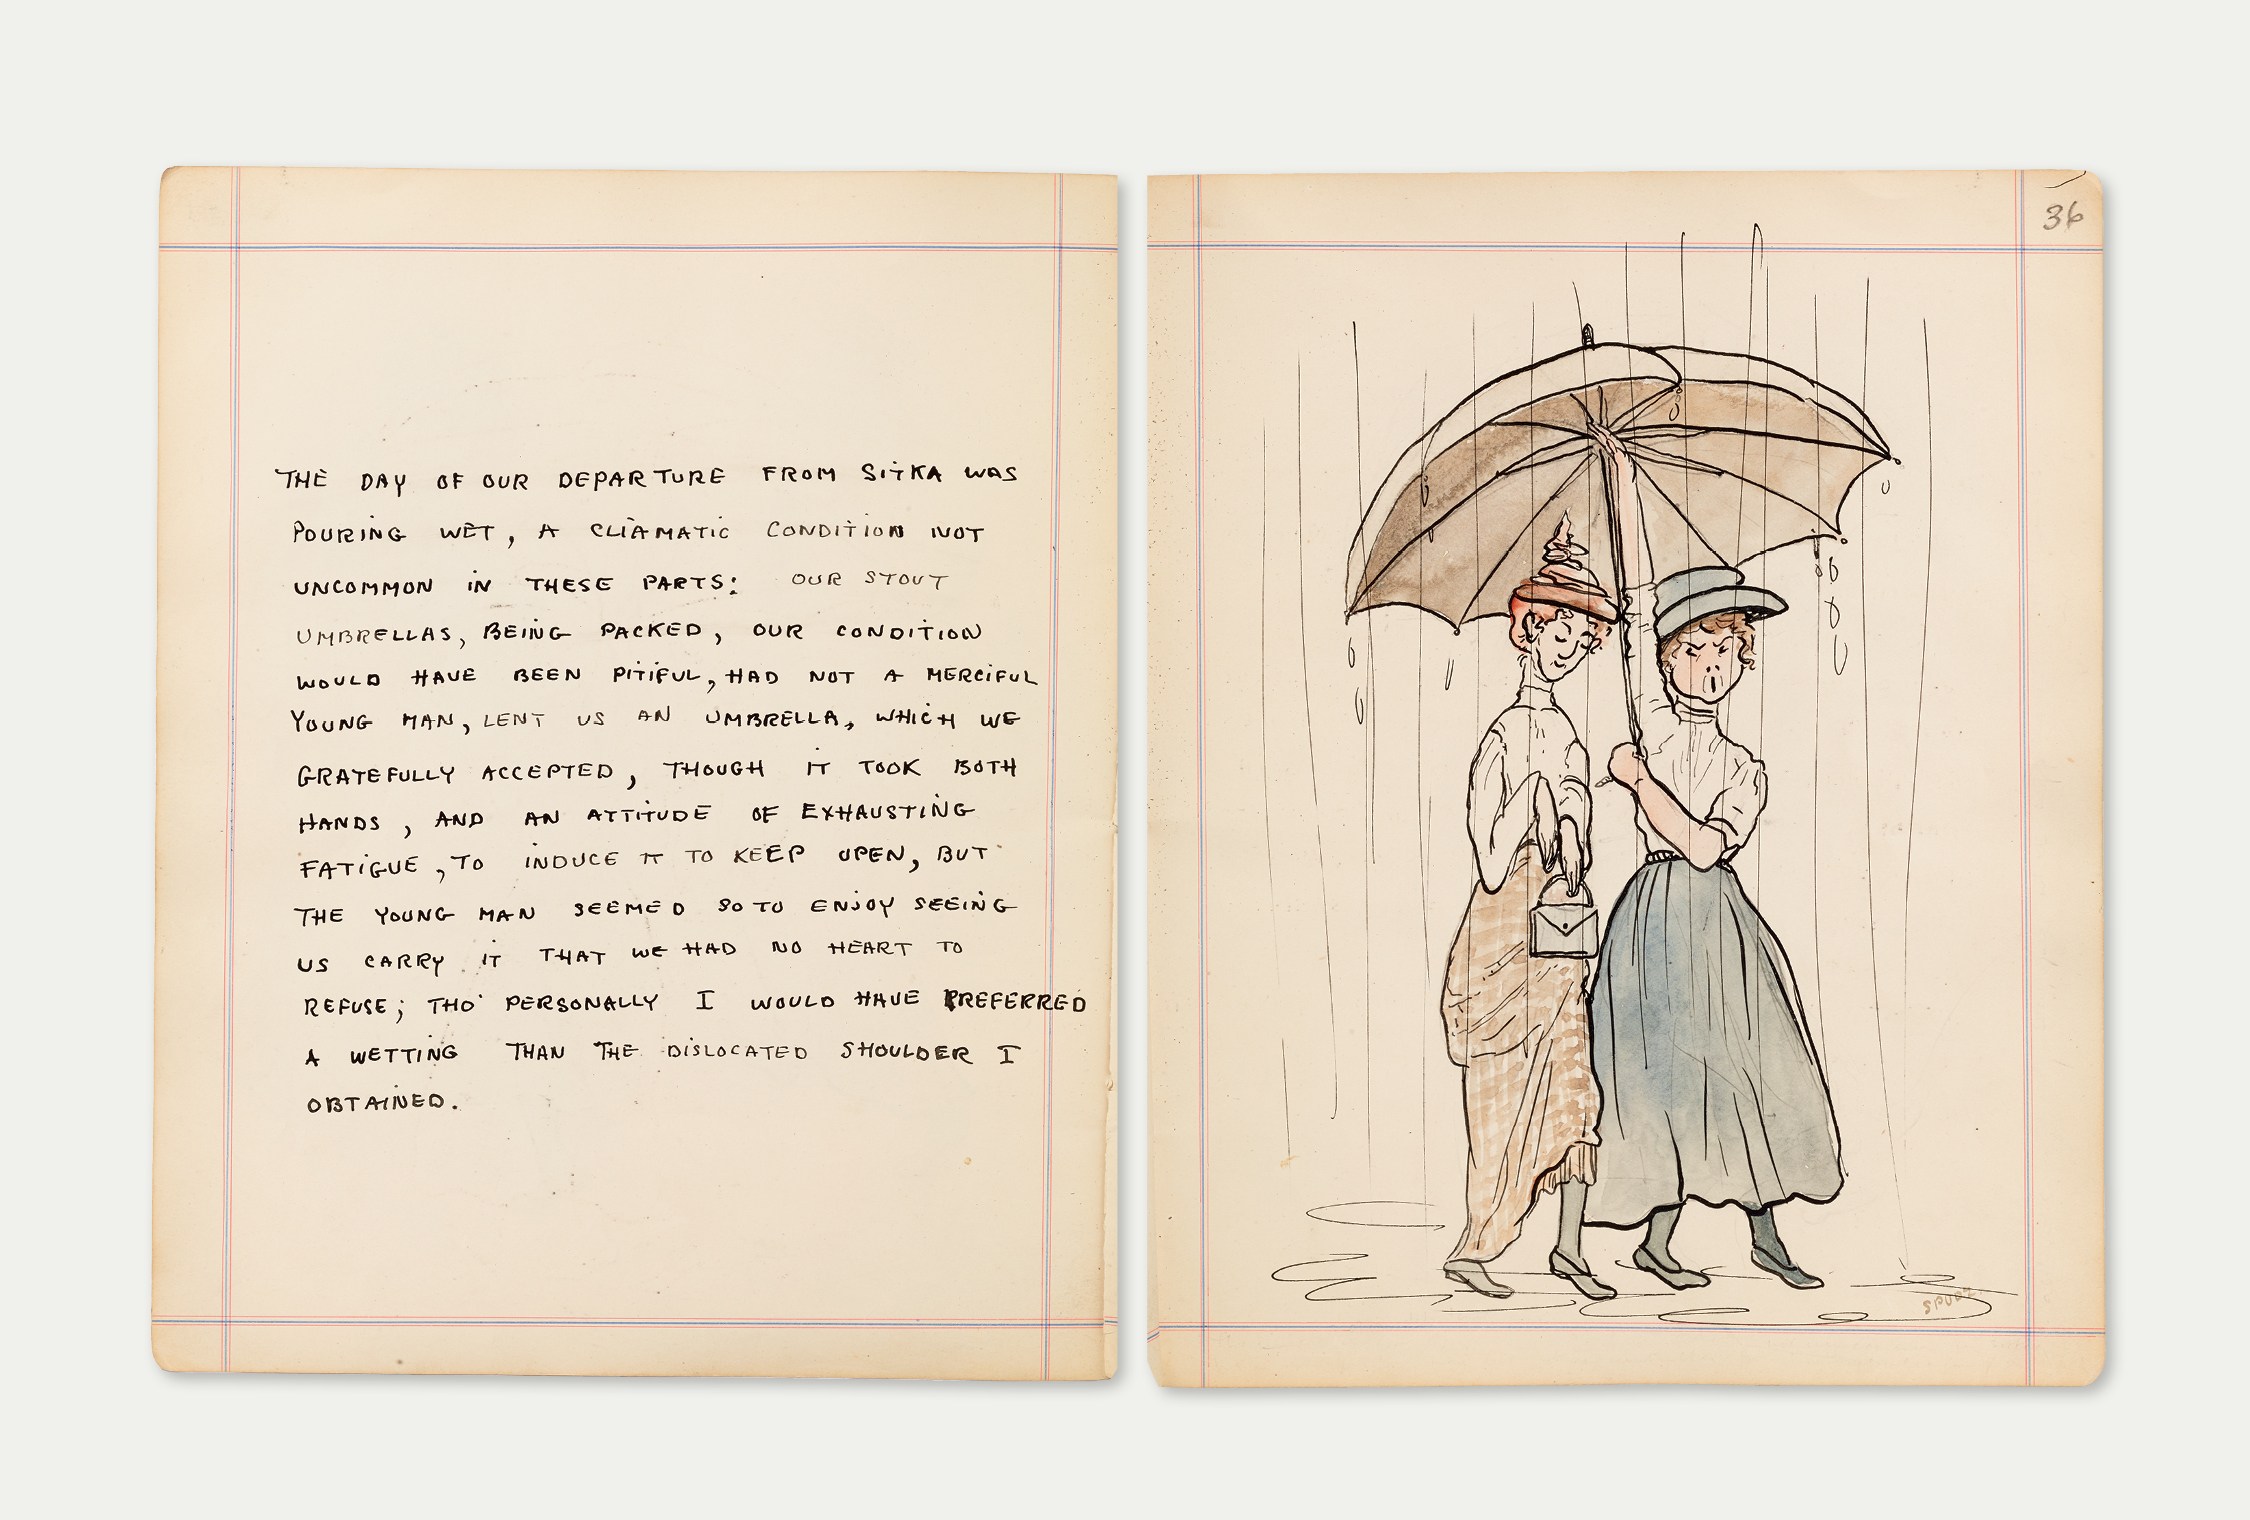 THE DAY OF OUR DEPARTURE FROM SITKA WAS
POURING WET, A CLIAMATIC CONDITION NOT
UNCOMMON IN THESE PARTS: OUR STOUT
UMBRELLAS, BEING PACKED, OUR CONDITION
WOULD HAVE BEEN PITIFUL, HAD NOT A MERCIFUL
YOUNG MAN, LENT US AN UMBRELLA, WHICH WE
GRATEFULLY ACCEPTED, THOUGH IT TOOK BOTH
HANDS, AND AN ATTITUDE OF EXHAUSTING
FATIGUE, TO INDUCE IT TO KEEP OPEN, BUT
THE YOUNG MAN SEEMED SO TO ENJOY SEEING
US CARRY IT THAT WE HAD NO HEART TO
REFUSE; THO' PERSONALLY I WOULD HAVE PREFERRED
A WETTING THAN THE DISLOCATED SHOULDER I
OBTAINED.
36